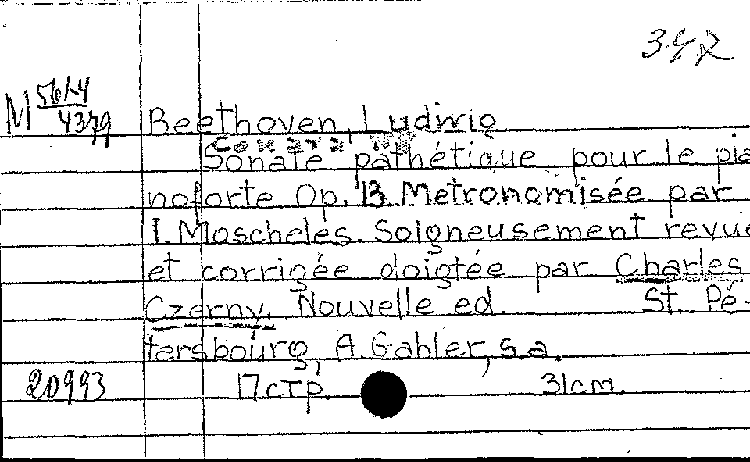 342
M 561-4
4379
Beethoven, Ludwig
Sonate pathétique pour le pia
noforte Op. 13. Metronomisée par
I. Moscheles. Soigneusement revue
et corrigée doigtée par Charles
Czerny. Nouvelle ed. St. Pé-
tersbourg, A. Gabler, s.a.
20993 17 стр. 31cm.